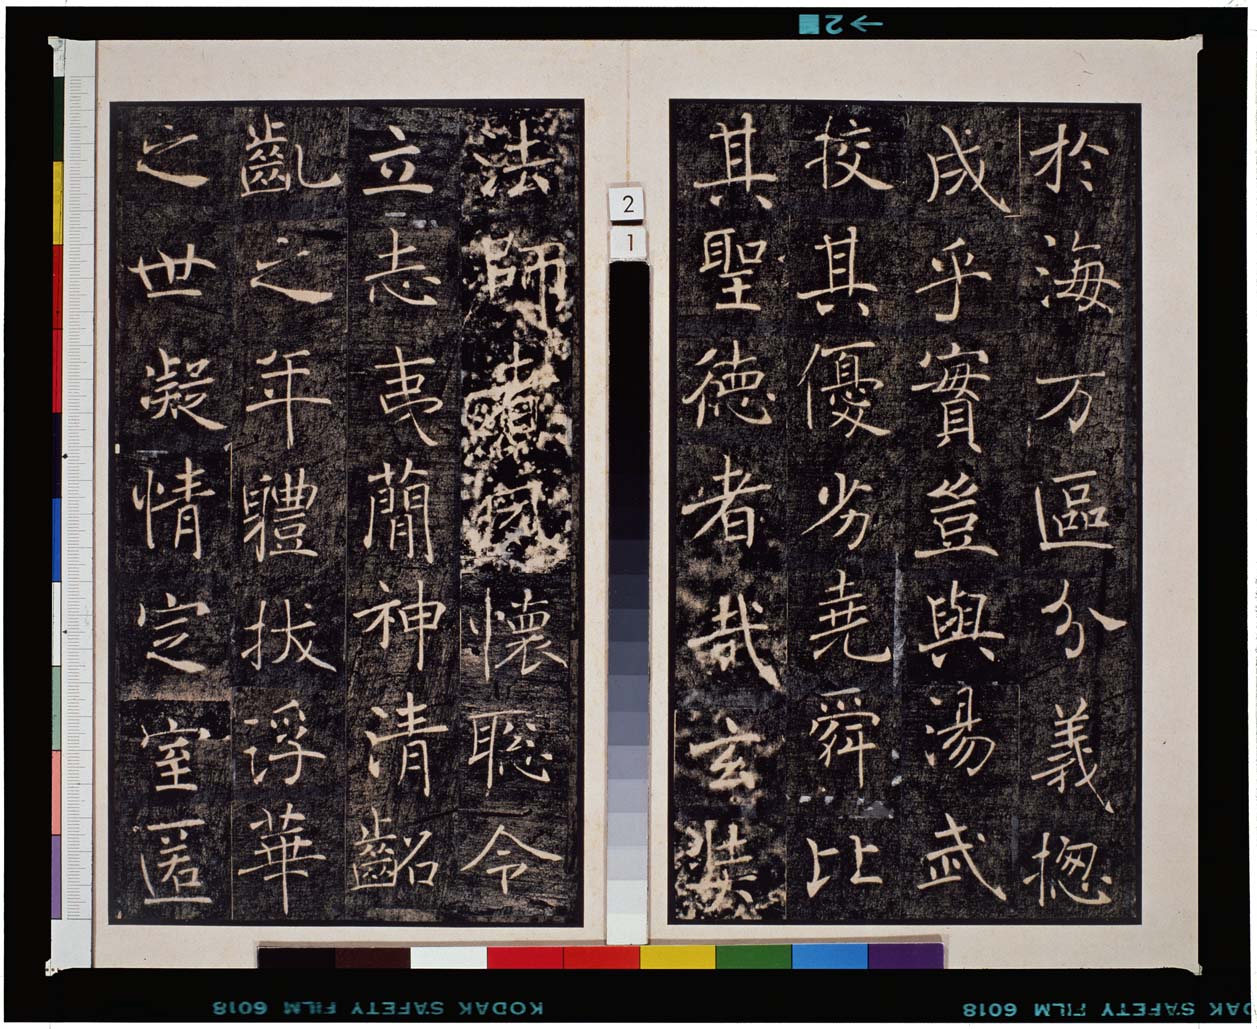 於海万區分義揔
成乎實豈與湯武
校其優劣堯舜比
其聖德者哉玄奘
法師者夙懷聡令
立志夷蕑神清齠
齔之年體拔浮華
之世凝情定室匿
2
1
→2
KODAK SAFETY FILM 6018
DAK SAFETY FILM 6018